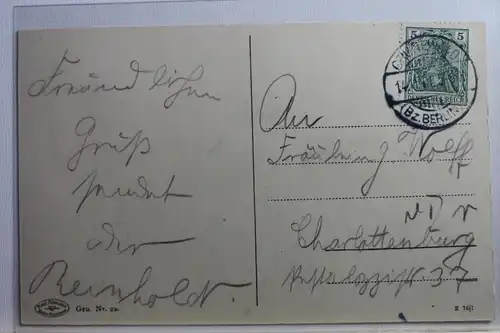 Freundlichen
Gruß
sendet
der
Reinholdt.
Gru. Nr. 22.
5 5
(Bz. BERLIN)
An
Fräulein J. Wolff
Charlottenburg
Pestalozzistr. 37